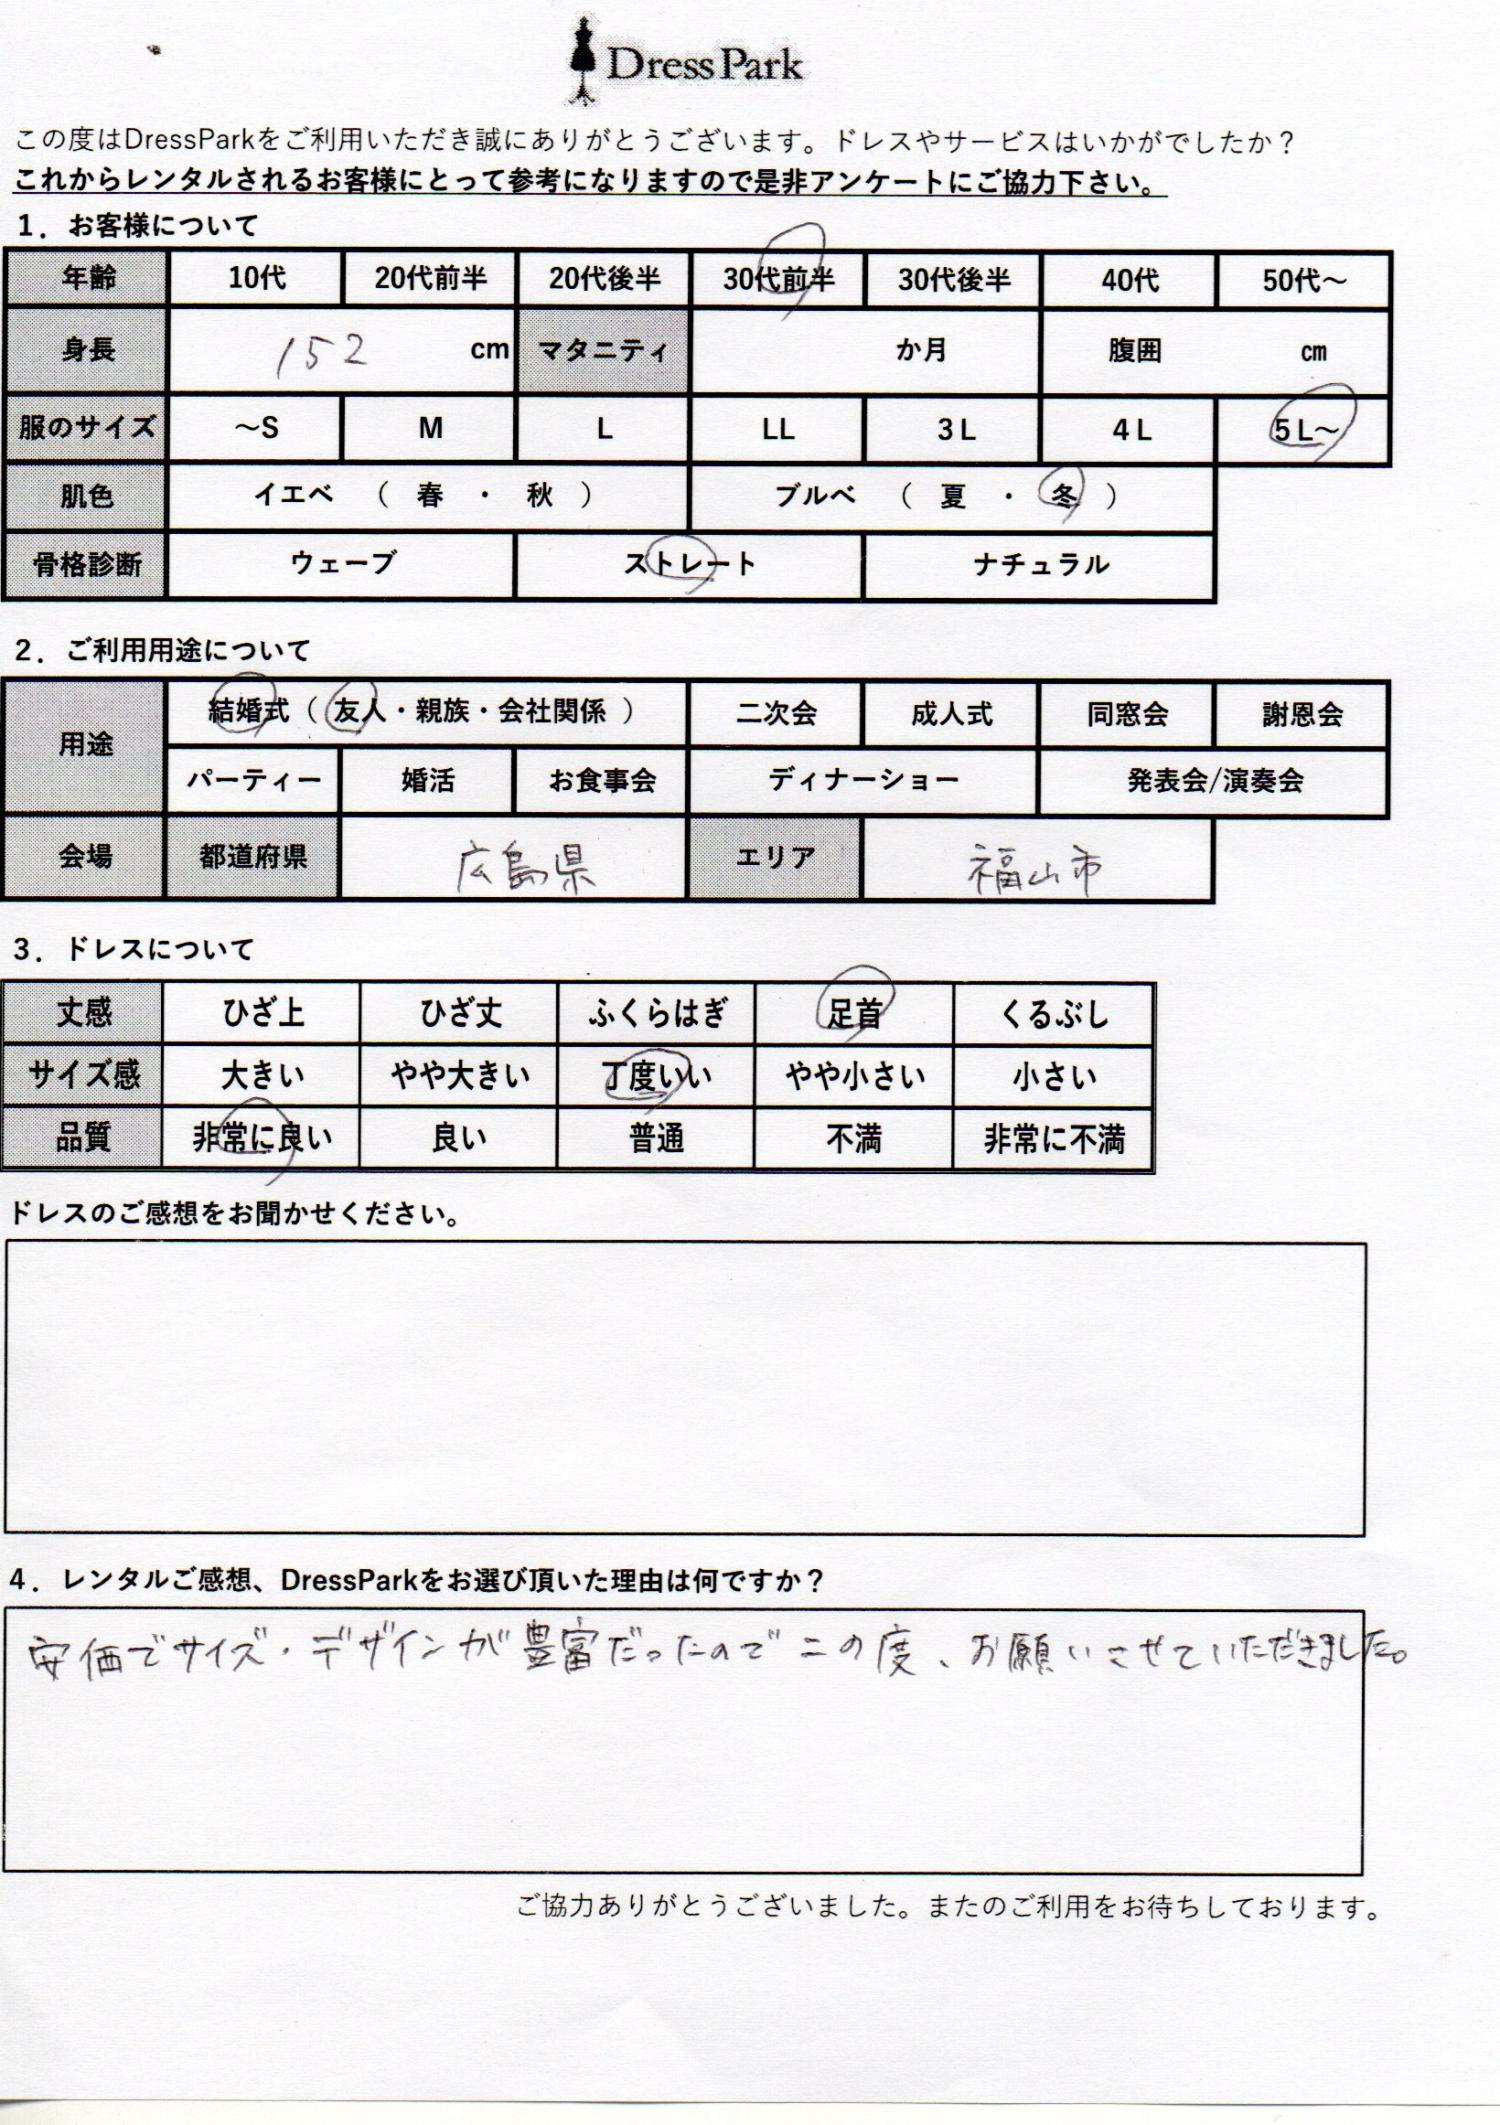 DressPark
この度はDressParkをご利用いただき誠にありがとうございます。ドレスやサービスはいかがでしたか？
これからレンタルされるお客様にとって参考になりますので是非アンケートにご協力下さい。
１．お客様について
年齢 10代 20代前半 20代後半 30代前半 30代後半 40代 50代～
身長 152 cm マタニティ か月 腹囲 ㎝
服のサイズ ～S M L LL 3L 4L 5L～
肌色 イエベ （ 春 ・ 秋 ） ブルベ （ 夏 ・ 冬 ）
骨格診断 ウェーブ ストレート ナチュラル
２．ご利用用途について
用途 結婚式（ 友人・親族・会社関係 ） 二次会 成人式 同窓会 謝恩会
パーティー 婚活 お食事会 ディナーショー 発表会/演奏会
会場 都道府県 広島県 エリア 福山市
３．ドレスについて
丈感 ひざ上 ひざ丈 ふくらはぎ 足首 くるぶし
サイズ感 大きい やや大きい 丁度いい やや小さい 小さい
品質 非常に良い 良い 普通 不満 非常に不満
ドレスのご感想をお聞かせください。
４．レンタルご感想、DressParkをお選び頂いた理由は何ですか？
安価でサイズ・デザインが豊富だったのでこの度、お願いさせていただきました。
ご協力ありがとうございました。またのご利用をお待ちしております。